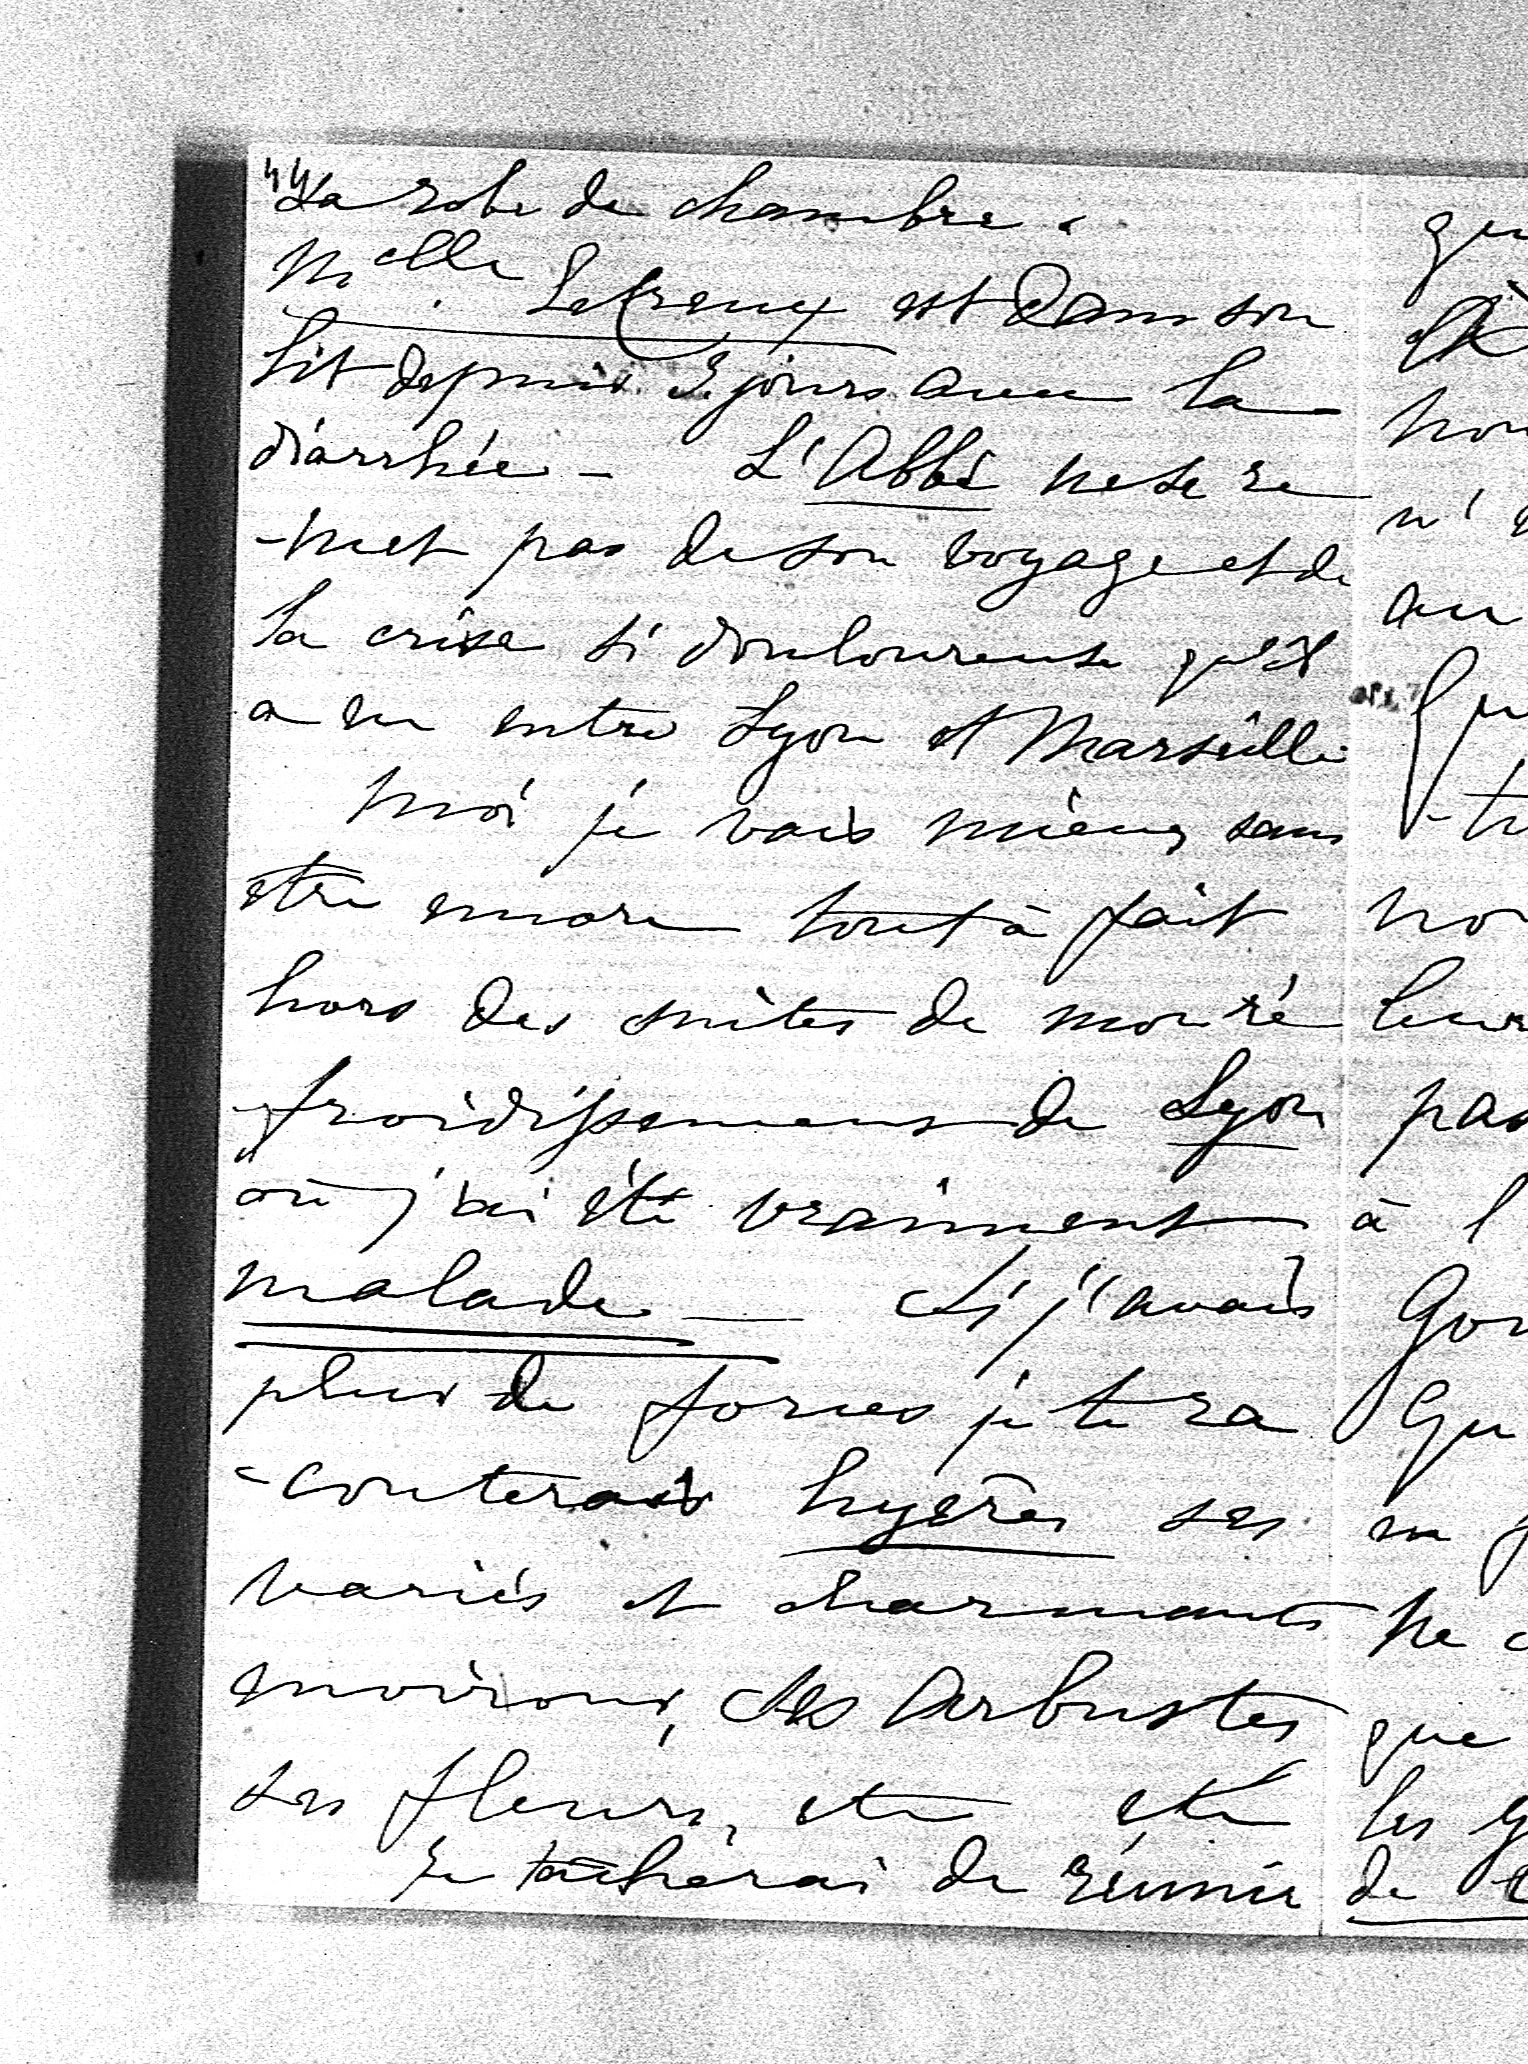 44 La robe de chambre.
Melle Lecreux est dans son
lit depuis 3 jours avec la
diarrhée - L'Abbé ne se re
-met pas de son voyage et de
la crise si douloureuse qu'il
a eu entre Lyon et Marseille
Moi je vais mieux, sans
etre encore tout à fait
hors des suites de mon ré
froidissement de Lyon
où j'ai été vraiment
malade - Si j'avais
plus de forces je te ra
-conterais hyères ses
variés et charmants
environs, ses Arbustes
ses fleurs, etc etc
Je tâcherai de réunir
à l
pas
que
de